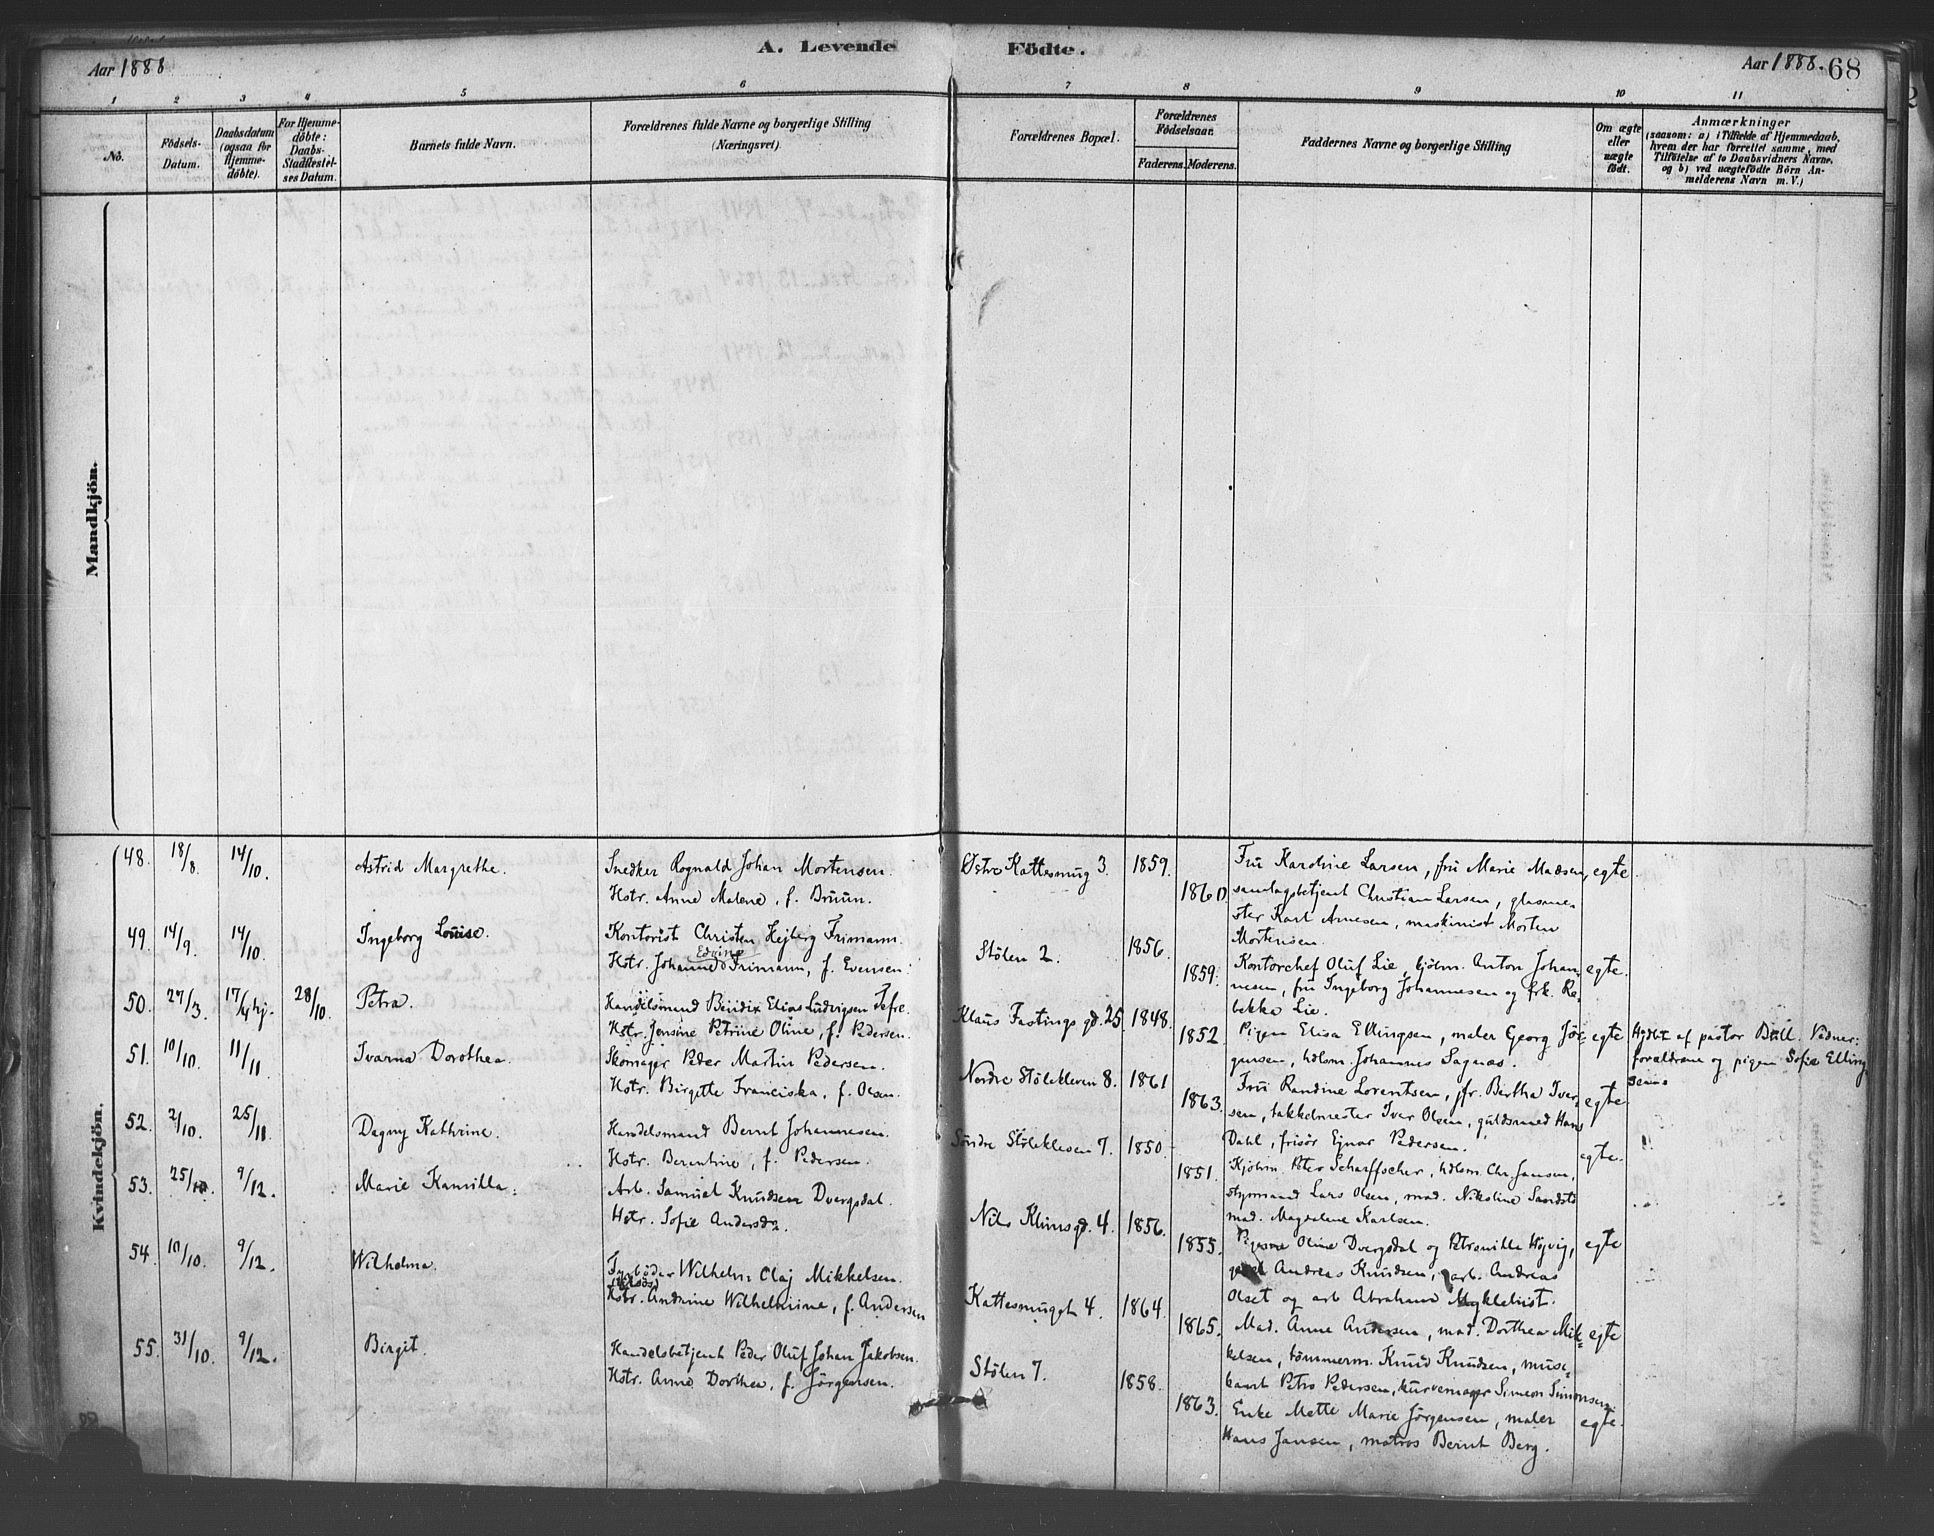 A. Levende Födte.
Aar 1888
Aar 1888. 68
1 2 3 4 5 6 7 8 9 10 11
No.
Födsels-Datum.
Daabsdatum (ogsaa for Hjemmedöbte).
For Hjemmedöbte: Daabs-Stadfæstelses Datum.
Barnets fulde Navn.
Forældrenes fulde Navne og borgerlige Stilling (Næringsvei).
Forældrenes Bopæl.
Forældrenes Födselsaar.
Faderens. Moderens.
Faddernes Navne og borgerlige Stilling
Om ægte eller uægte födt.
Anmærkninger
(saasom: a) i Tilfælde af Hjemmedaab,
hvem der har forrettet samme, med
Tilföielse af to Daabsvidners Navne,
og b) ved uægtefödte Börn Anmelderens Navn m. V.)
Mandkjön.
Kvindekjön.
48. 18/8. 14/10. Astrid Margrethe.
Snedker Rognald Johan Mortensen.
Hstr. Anne Malene, f. Bruun.
Østre Kattesmug 3. 1859. 1860.
Fru Karoline Larsen, fru Marie Madsen,
samlagsbetjent Christian Larsen, glasme-
ster Karl Arnesen, maskinist Morten
Mortensen.
egte.
49. 14/9. 14/10. Ingeborg Louise.
Kontorist Christen Hejberg Frimann.
Edvine
Hstr. Johanne Frimann, f. Evensen.
Stölen 2. 1856. 1859.
Kontorchef Oluf Lie, kjöbm. Anton Johan-
nesen, fru Ingeborg Johannesen og frk. Re-
bekka Lie.
egte.
50. 27/3. 17/4 hj. 28/10. Petra.
Handelsmand Bendix Elias Ludvigsen Tefre.
Hstr. Jensine Petrine Oline, f. Pedersen.
Klaus Fastings gd. 25 1848. 1852.
Pigen Elisa Ellingsen, maler Georg Jör-
gensen, hdlsm. Johannes Sagnæs.
egte
Hjdbt af pastor Bull. Vidner:
forældrene og pigen Sofie Elling-
sen
51. 10/10. 11/11. Ivarna Dorothea.
Skomager Peder Martin Pedersen.
Hstr. Birgitte Franciska, f. Olsen.
Nordre Stölekleven 8. 1861 1863.
Fru Randine Lorentsen, fr. Bertha Iver-
sen, takkelmester Iver Olsen, guldsmed Hans
Dahl, frisör Ejnar Pedersen.
egte
52. 2/10. 25/11. Dagny Kathrine.
Handelsmand Bernt Johannesen.
Hstr. Berentine, f. Pedersen.
Söndre Stölekleven 7. 1850 1851.
Kjöbm. Peter Scharffscher, hdlsm. Chr. Jansen,
styrmand Lars Olsen, mad. Nikoline
mad. Magdalene Karlsen.
egte.
53. 25/10. 9/12. Marie Kamilla.
Arb. Samuel Knudsen Dvergsdal.
Hstr. Sofie Andersdr.
Nils Klimsgd. 4. 1856. 1855.
Pigerne Oline Dvergsdal og Petronille Højvig,
Andreas Knudsen, arb. Andreas
Olset og arb Abraham Myklebust.
egte
54. 10/10. 9/12. Wilhelma.
Fyrböder Wilhelm Olaj Mikkelsen.
Hstr. Andrine Wilhelmine, f. Andersen
Kattesmuget 4. 1864. 1865.
Mad. Anne Andersen, mad. Dorthea Mik-
kelsen, tömmerm. Knud Knudsen, muse-
kant Petro Pedersen, kurvemager Simeon Simonsen.
egte
55. 31/10. 9/12. Birgit.
Handelsbetjent Peder Oluf Johan Jakobsen.
Hstr. Anne Dorthea, f. Jörgensen.
Stölen 7. 1858. 1863.
Enke Mette Marie Jörgensen, maler
Hans Jansen, matros Bernt Berg.
egte.